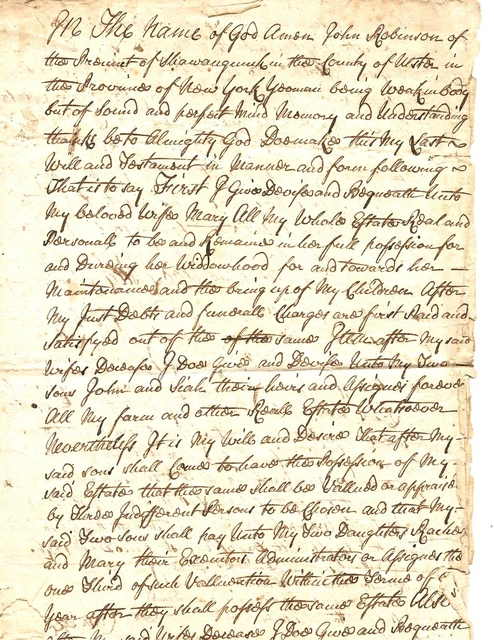 IN The Name of God Amen John Robinson of
the Precinct of Shawangunk in the County of Ulster in
the Province of New York Yeoman being Weak in Body
but of Sound and perfect Mind Memory and Understanding
thanks be to Almighty God Doe make this My Last
Will and Testament in Manner and form following
That is to say First I Give Devise and Bequeath Unto
My beloved Wife Mary All My Whole Estate Real and
Personall to be and Remaine in her full possession for
and Dureing her Widdowhood for and towards her
Maintenance and the bring up of My Children After
My Just Debts and funerall Charges are first Paid and
Satisfyed out of the of the same Item after My said
Wifes Decease I Doe Give and Devise Unto My Two
sons John and their heirs and Assignes forever
All My farm and other Reall Estate Whatsoever
Nevertheless It is My Will and Desire That after My
said sons shall Come to have the Possession of My
said Estate that the same shall be Vallued or appraised
by Three Indifferent Persons to be Chosen and that My
said Two sons shall pay Unto My Two Daughters Rachel
and Mary their Executors Administrators or Assignes the
one Third of such Valleuation Within the Terme of
Year after they shall possess the same Estate Also
after My said Wifes Decease I Doe Give and Bequeath